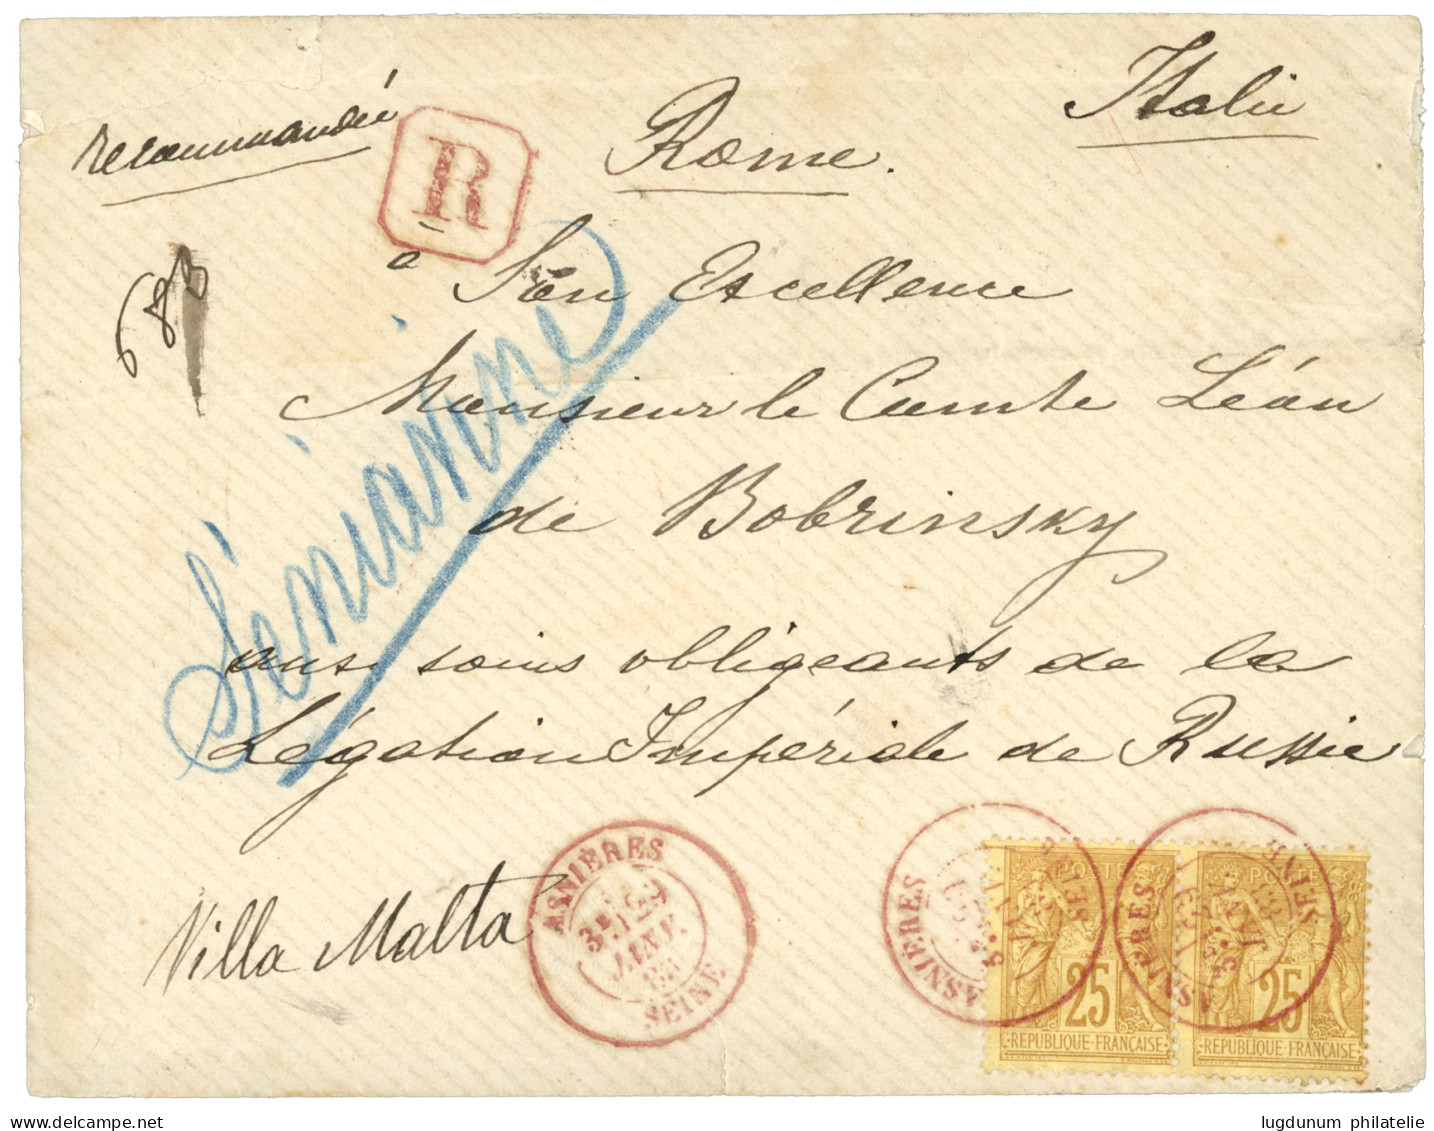 Italie
recommandée
R
Rome.
683
à Son Excellence
Monsieur le Comte Léon
de Bobrinsky
aux soins obligeants de la
Légation Impériale de Russie
Villa Malta
ASNIÈRES
3E 29
JANV.
SEINE
ASNIÈRES
SEINE
ASNIÈRES
SEINE
POSTE
25
REPUBLIQUE FRANÇAISE
POSTE
25
REPUBLIQUE FRANÇAISE
lugdunum philatelie